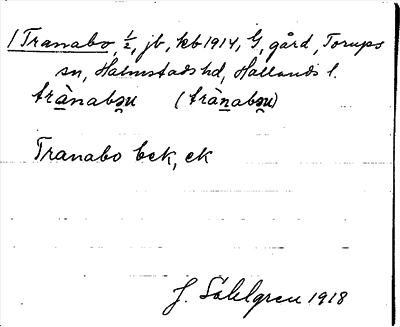 1 Tranabo, ½, jb, kb 1914, G, gård, Torups
sn, Halmstads hd, Hallands l.
trànabəu (trànabəu)
Tranabo bck, ck
J. Sahlgren 1918